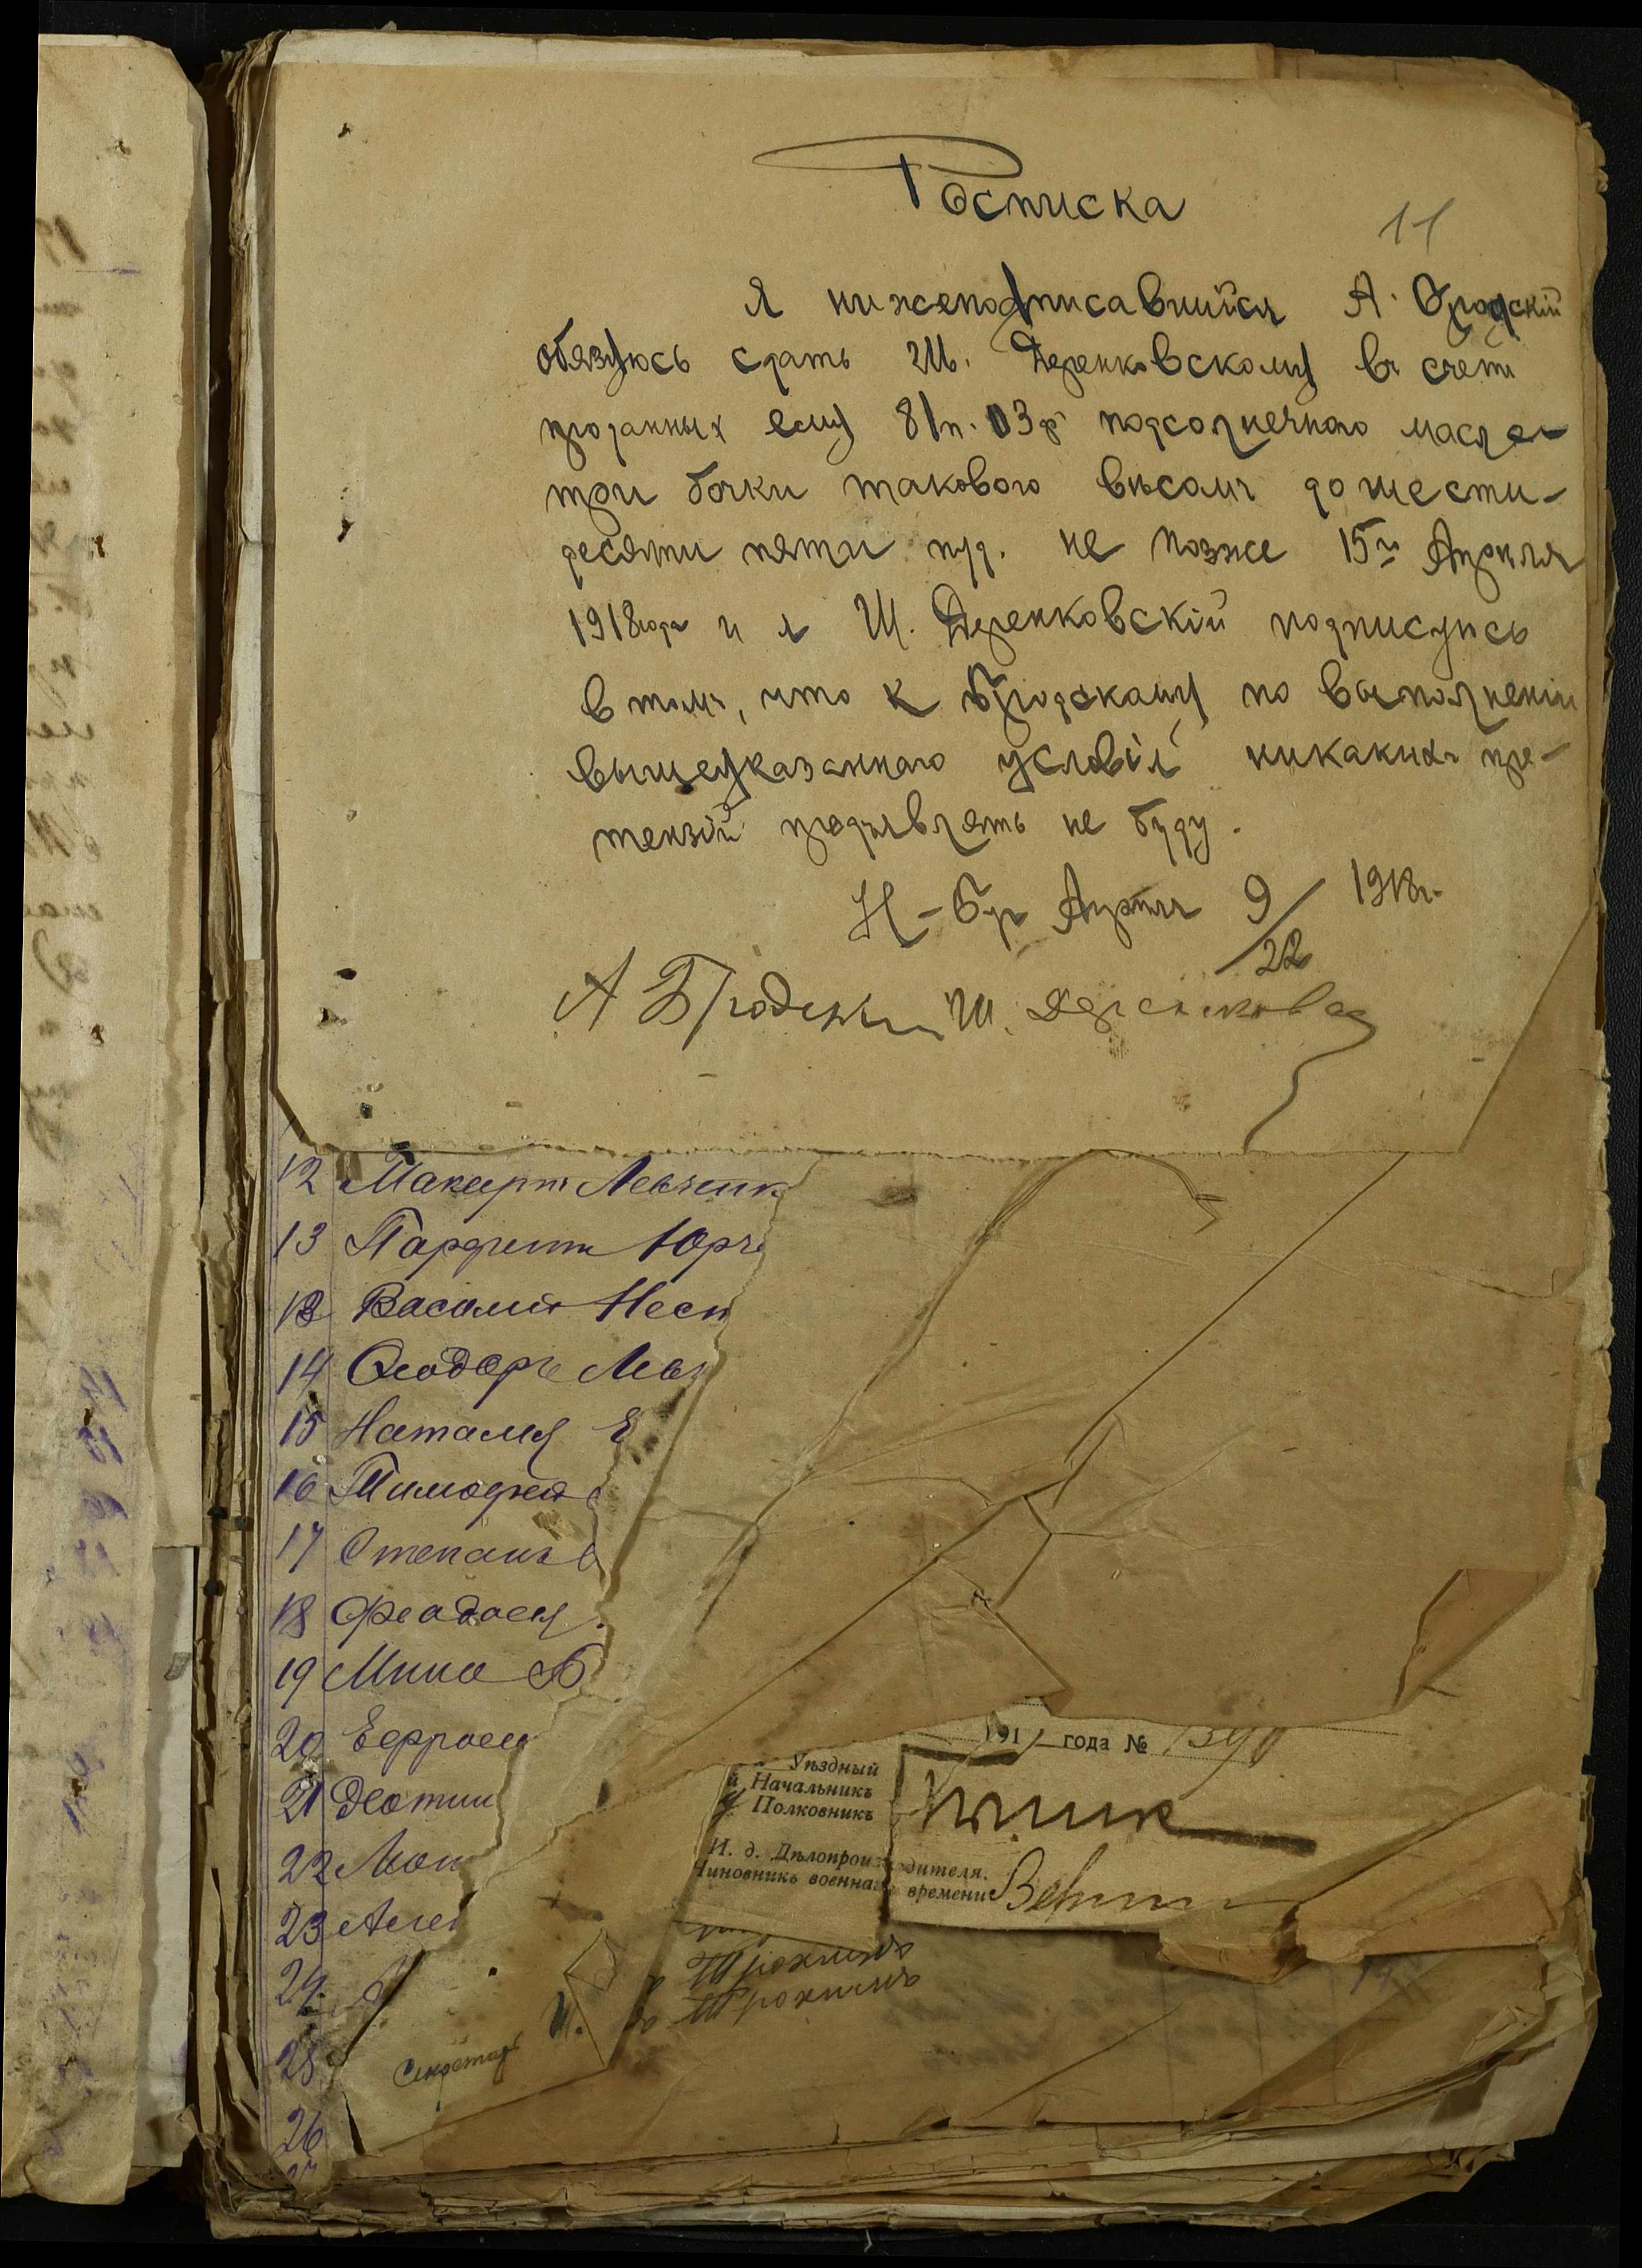 Росписка
11
Я нижеподписавшийся А. Бродскій
обязуюсь сдать Ш. Деренковскому въ счетъ
проданных ему 81п. 03ф подсолнечного масла
три бочки такового вѣсомъ до шести-
десяти пяти пуд. не позже 15го Апреля
1918 года и я Ш. Деренковскій подписуюсь
в томъ, что к Бродскому по выполненіи
вышеуказанного условія никакихъ пре-
тензій предъявлять не буду.
Н-Буг Апреля 9/22 1918г.
А Бродскій Ш. Деренковск
12 Левченк
13 Парфентій Юрч
13 Василій Несп
14 Феодоръ Лев
15 Наталія Е
16 Тимофей
17 Степанъ
18 Феодосія
19 Мина
20 Ефросин
21
22
23 Алек
24
25
26
27
1917 года №
Уѣздный
й Начальникъ
Полковникъ
И. д. Дѣлопроизводителя.
Чиновникъ военнаго времени
Трохимъ
Трохимъ
Секретарь